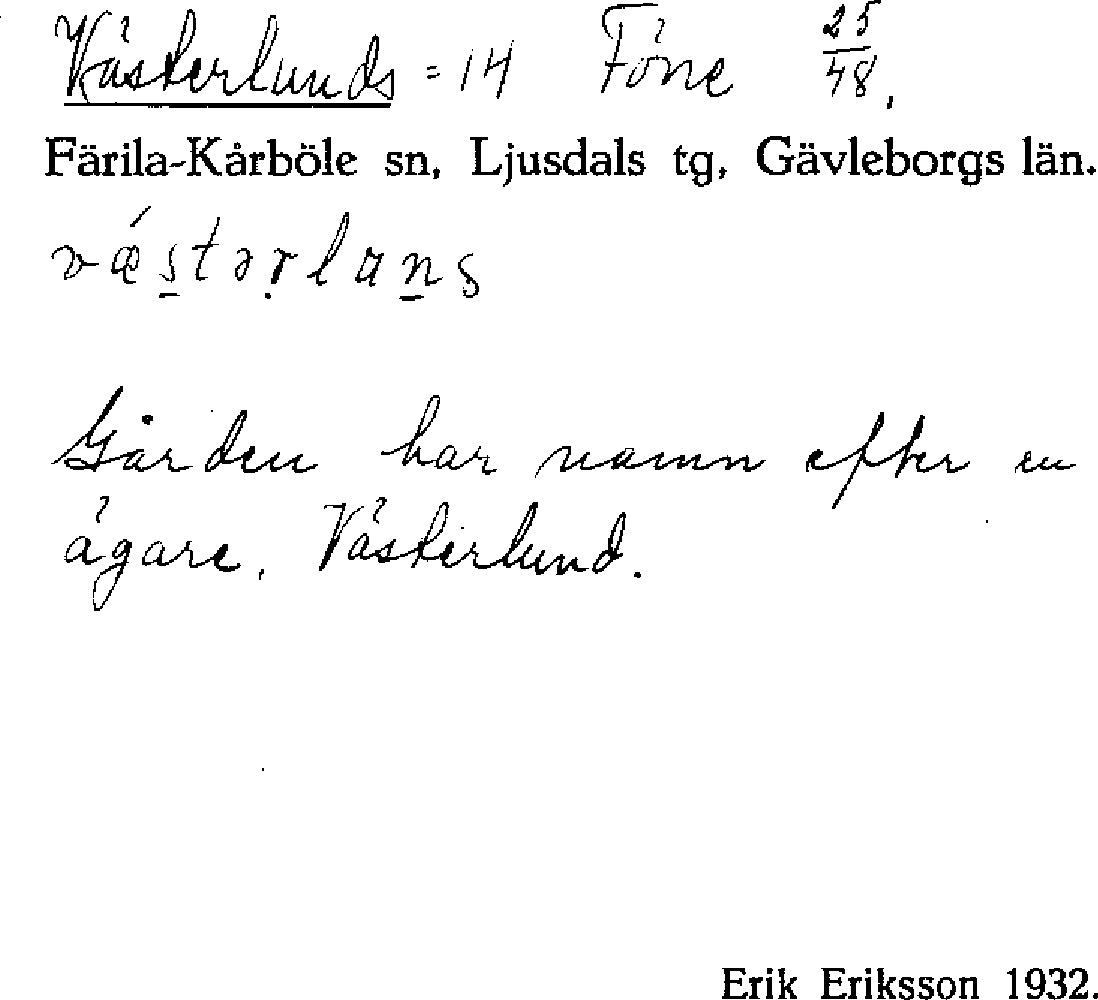 Västerlunds = 14 Föne 25/48.
Färila-Kårböle sn, Ljusdals tg, Gävleborgs län.
væ´stərlans
Gården har namn efter en
ägare, Västerlund.
Erik Eriksson 1932.